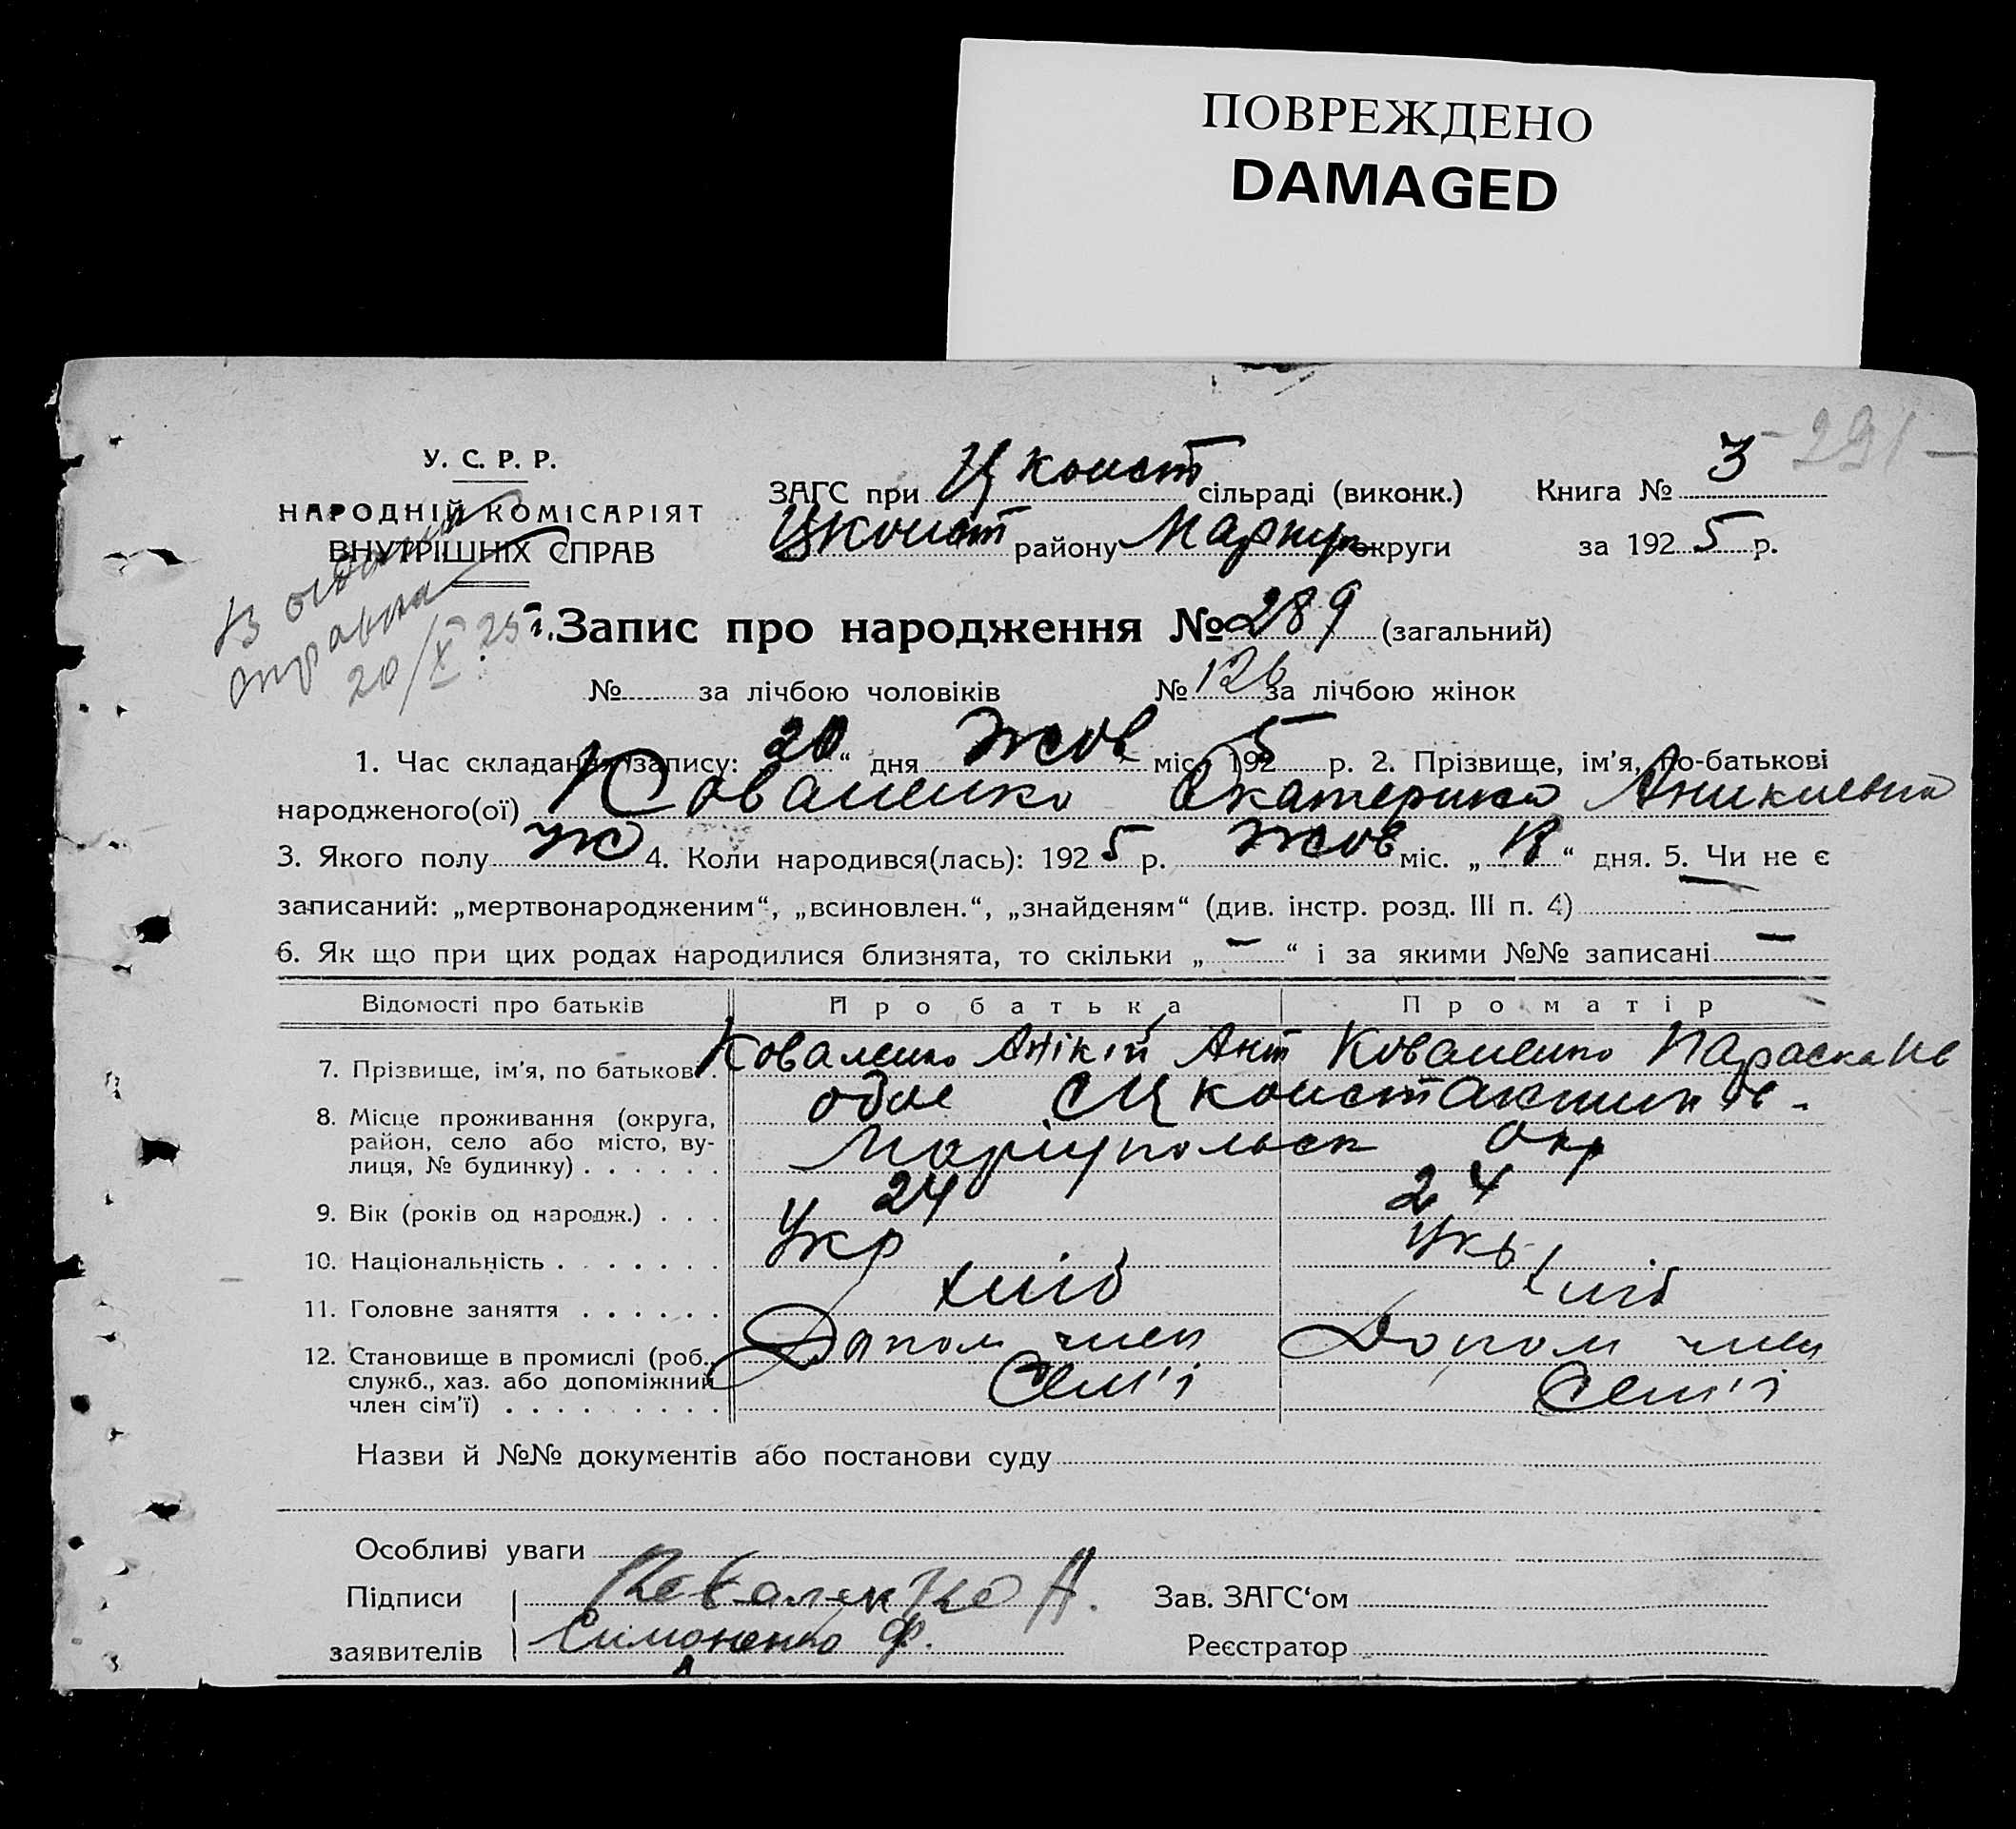 ПОВРЕЖДЕНО
DAMAGED
- 291 -
У. С. Р. Р.
НАРОДНІЙ КОМІСАРІЯТ
ВНУТРІШНІХ СПРАВ
ЗАГС при Ц конст сільраді (виконк.) Книга № 3
Цконст району Мариуп округи за 1925 р.
20/X 25 г.
Запис про народження № 289 (загальний)
№ за лічбою чоловіків № 126 за лічбою жінок
1. Час складання запису: 20 " дня Жов міс. 1925 р. 2. Прізвище, ім'я, по-батькові
народженого(ої) Коваленко Екатерина Аникиевна
3. Якого полу ж 4. Коли народився(лась): 1925 р. Жов міс. „ 18 " дня. 5. Чи не є
записаний: „мертвонародженим", „всиновлен.", „знайденям" (див. інстр. розд. III п. 4)
6. Як що при цих родах народилися близнята, то скільки „ — " і за якими №№ записані —
Відомості про батьків Про батька Про матір
7. Прізвище, ім'я, по батькові . Коваленко Анікій Ант Коваленко Параска Ив
8. Місце проживання (округа, обое с Ц константинів -
район, село або місто, ву-
лиця, № будинку) . . . . . . Маріупольск окр
9. Вік (років од народж.) . . . 24 24
10. Національність . . . . . . . Укр Укр
11. Головне заняття . . . . . . хліб хліб
12. Становище в промислі (роб., Допом член Допом член
служб., хаз. або допоміжний Семʼі Семʼі
член сім'ї) . . . . . . . . .
Назви й №№ документів або постанови суду
Особливі уваги
Підписи Коваленко А. Зав. ЗАГС'ом
заявителів Симоненко Ф. Реєстратор